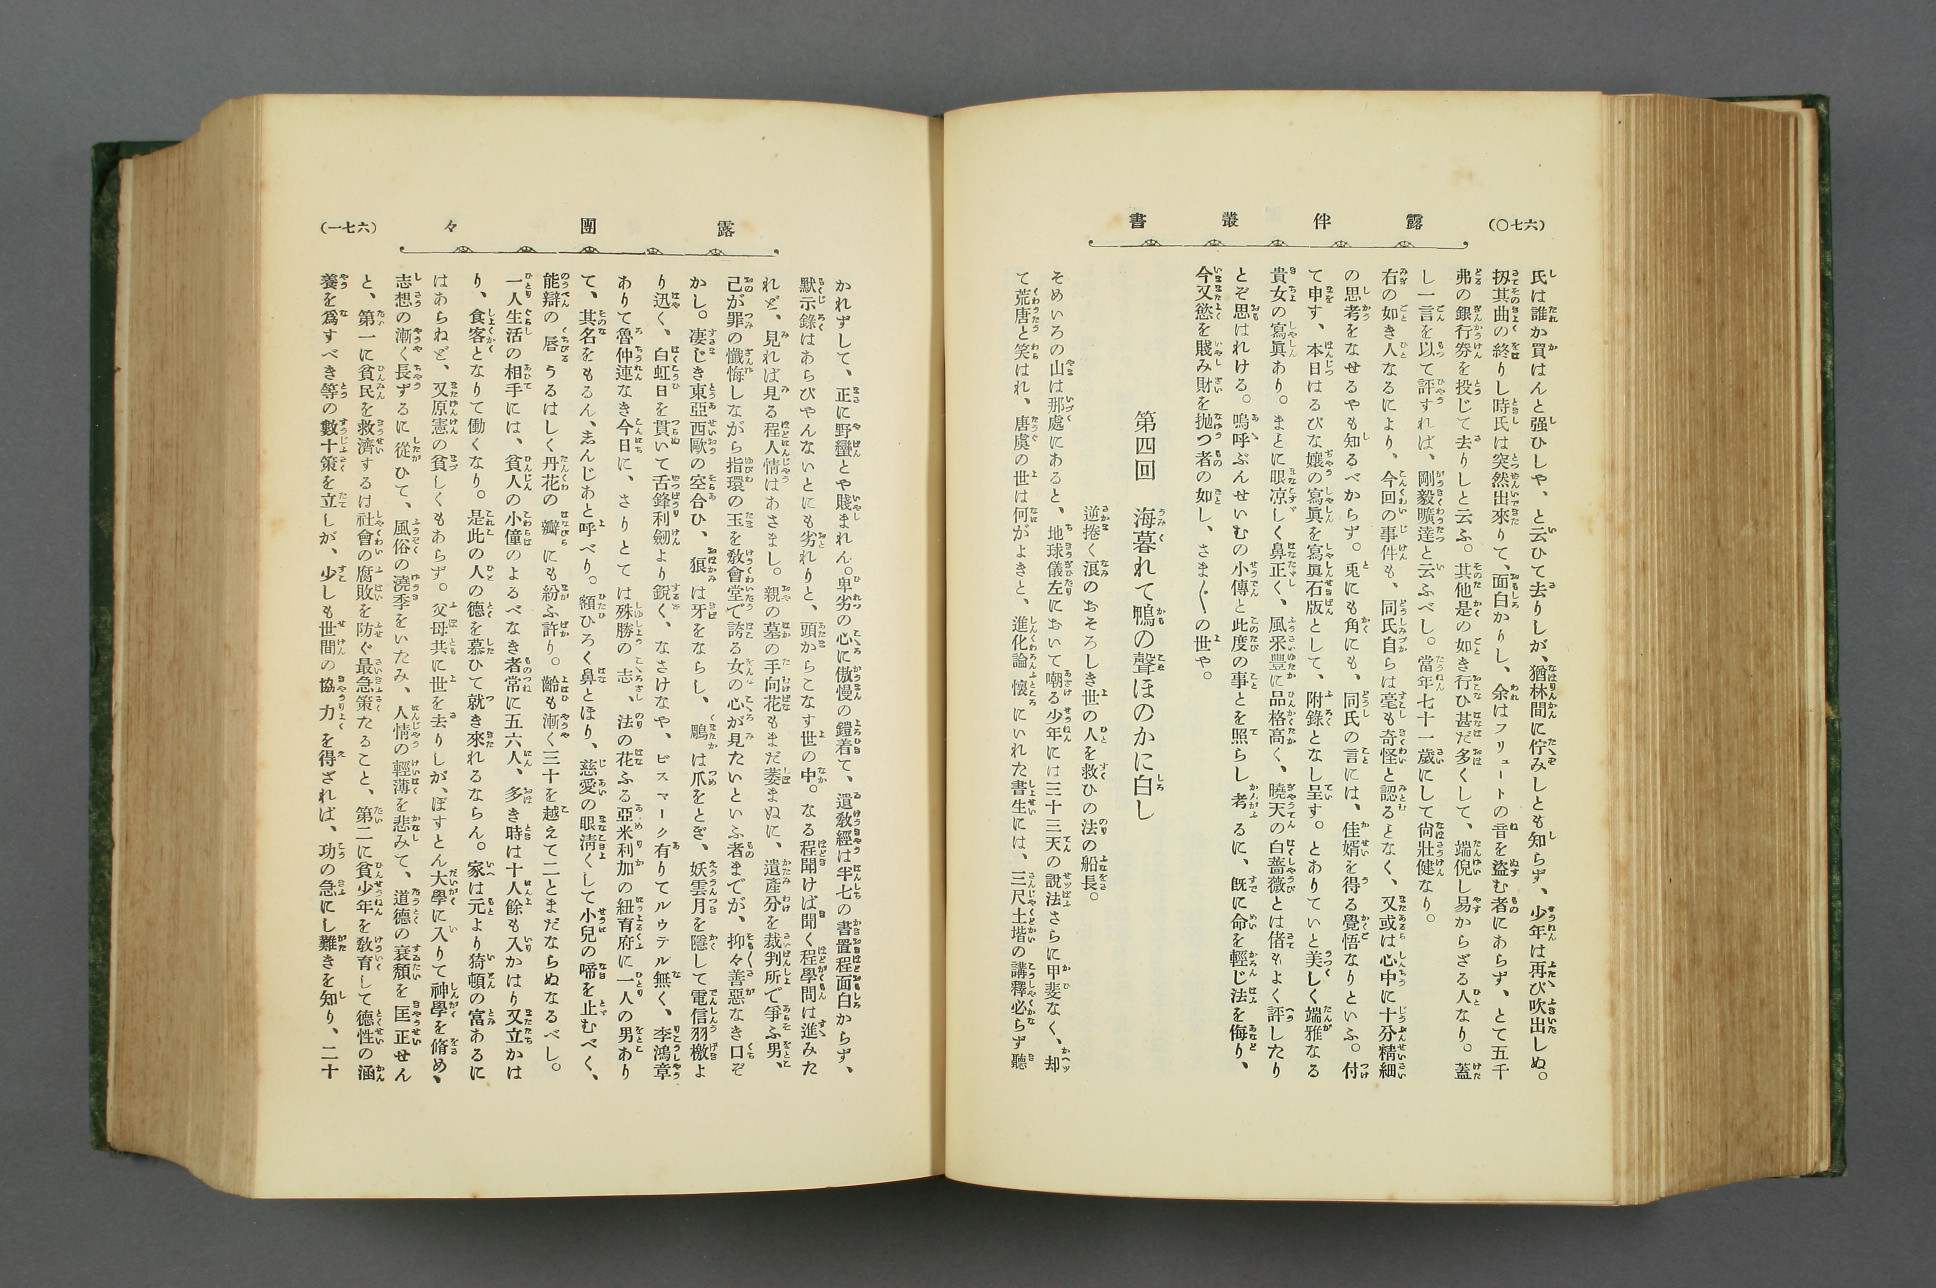 (六七〇)
露伴叢書
氏は誰か買はんと强ひしや、と云ひて去りしが、猶林間に佇みしとも知らず、少年は再び吹出しぬ。
扨其曲の終りし時氏は突然出來りて、面白かりし、余はフリュートの音を盜む者にあらず、とて五千
弗の銀行券を投じて去りしと云ふ。其他是の如き行ひ甚だ多くして、端倪し易からざる人なり。蓋
し一言を以て評すれば、剛毅曠達と云ふべし。當年七十一歲にして尙壯健なり。
右の如き人なるにより、今回の事件も、同氏自らは毫も奇怪と認るとなく、又或は心中に十分精細
の思考をなせるやも知るべからず。兎にも角にも、同氏の言には、佳婿を得る覺悟なりといふ。付
て申す、本日はるびな孃の寫眞を寫眞石版として、附錄となし呈す。とありていと美しく端雅なる
貴女の寫眞あり。まとに眼凉しく鼻正く、風采豐に品格高く、曉天の白薔薇とは偖もよく評したり
とぞ思はれける。嗚呼ぶんせいむの小傳と此度の事とを照らし考るに、旣に命を輕じ法を侮り、
今又慾を賤み財を抛つ者の如し、さま〴〵の世や。
第四回　海暮れて鴨の聲ほのかに白し
逆捲く浪のおそろしき世の人を救ひの法の船長。
そめいろの山は那處にあると、地球儀左において嘲る少年には三十三天の說法さらに甲斐なく、却
て荒唐と笑はれ、唐虞の世は何がよきと、進化論懷にいれた書生には、三尺土堦の講釋必らず聽
露團々
(六七一)
かれずして、正に野蠻とや賤まれん。卑劣の心に傲慢の鎧着て、遺敎經は半七の書置程面白からず、
默示錄はあらびやんないとにも劣れりと、頭からこなす世の中。なる程聞けば聞く程學問は進みた
れど、見れば見る程人情はあさまし。親の墓の手向花もまだ萎まぬに、遺產分を裁判所で爭ふ男、
己が罪の懺悔しながら指環の玉を敎會堂で誇る女の心が見たいといふ者までが、抑々善惡なき口ぞ
かし。凄じき東亞西歐の空合ひ、狼は牙をならし、鵰は爪をとぎ、妖雲月を隱して電信羽檄よ
り迅く、白虹日を貫いて舌鋒利劒より銳く、なさけなや、ビスマーク有りてルウテル無く、李鴻章
ありて魯仲連なき今日に、さりとては殊勝の志、法の花ふる亞米利加の紐育府に一人の男あり
て、其名をもるん、志んじあと呼べり。額ひろく鼻とほり、慈愛の眼淸くして小兒の啼を止むべく、
能辯の唇うるはしく丹花の瓣にも紛ふ許り。齡も漸く三十を越えて二とまだならぬなるべし。
一人生活の相手には、貧人の小僮のよるべなき者常に五六人、多き時は十人餘も入かはり又立かは
り、食客となりて働くなり。是此の人の德を慕ひて就き來れるならん。家は元より猗頓の富あるに
はあらねど、又原憲の貧しくもあらず。父母共に世を去りしが、ぼすとん大學に入りて神學を脩め、
志想の漸く長ずるに從ひて、風俗の澆季をいたみ、人情の輕薄を悲みて、道德の衰頽を匡正せん
と、第一に貧民を救濟するは社會の腐敗を防ぐ最急策たること、第二に貧少年を敎育して德性の涵
養を爲すべき等の數十策を立しが、少しも世間の協力を得ざれば、功の急にし難きを知り、二十